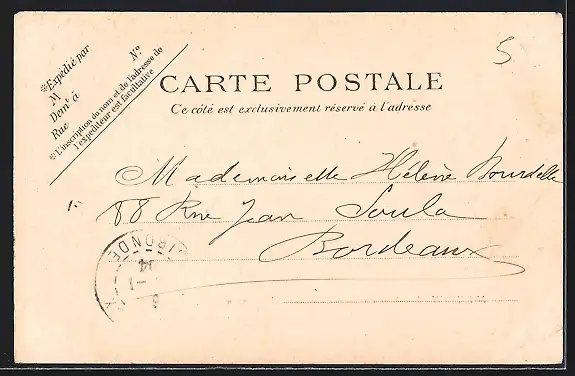 5
※Expédié par
M N°
Demt à
Rue
※L'inscription du nom et de l'adresse de
l'expéditeur est facultative
CARTE POSTALE
Ce côté est exclusivement réservé à l'adresse
Mademoiselle Hélène Bourdelle
88 Rue Jean Soula
Bordeaux
GIRONDE